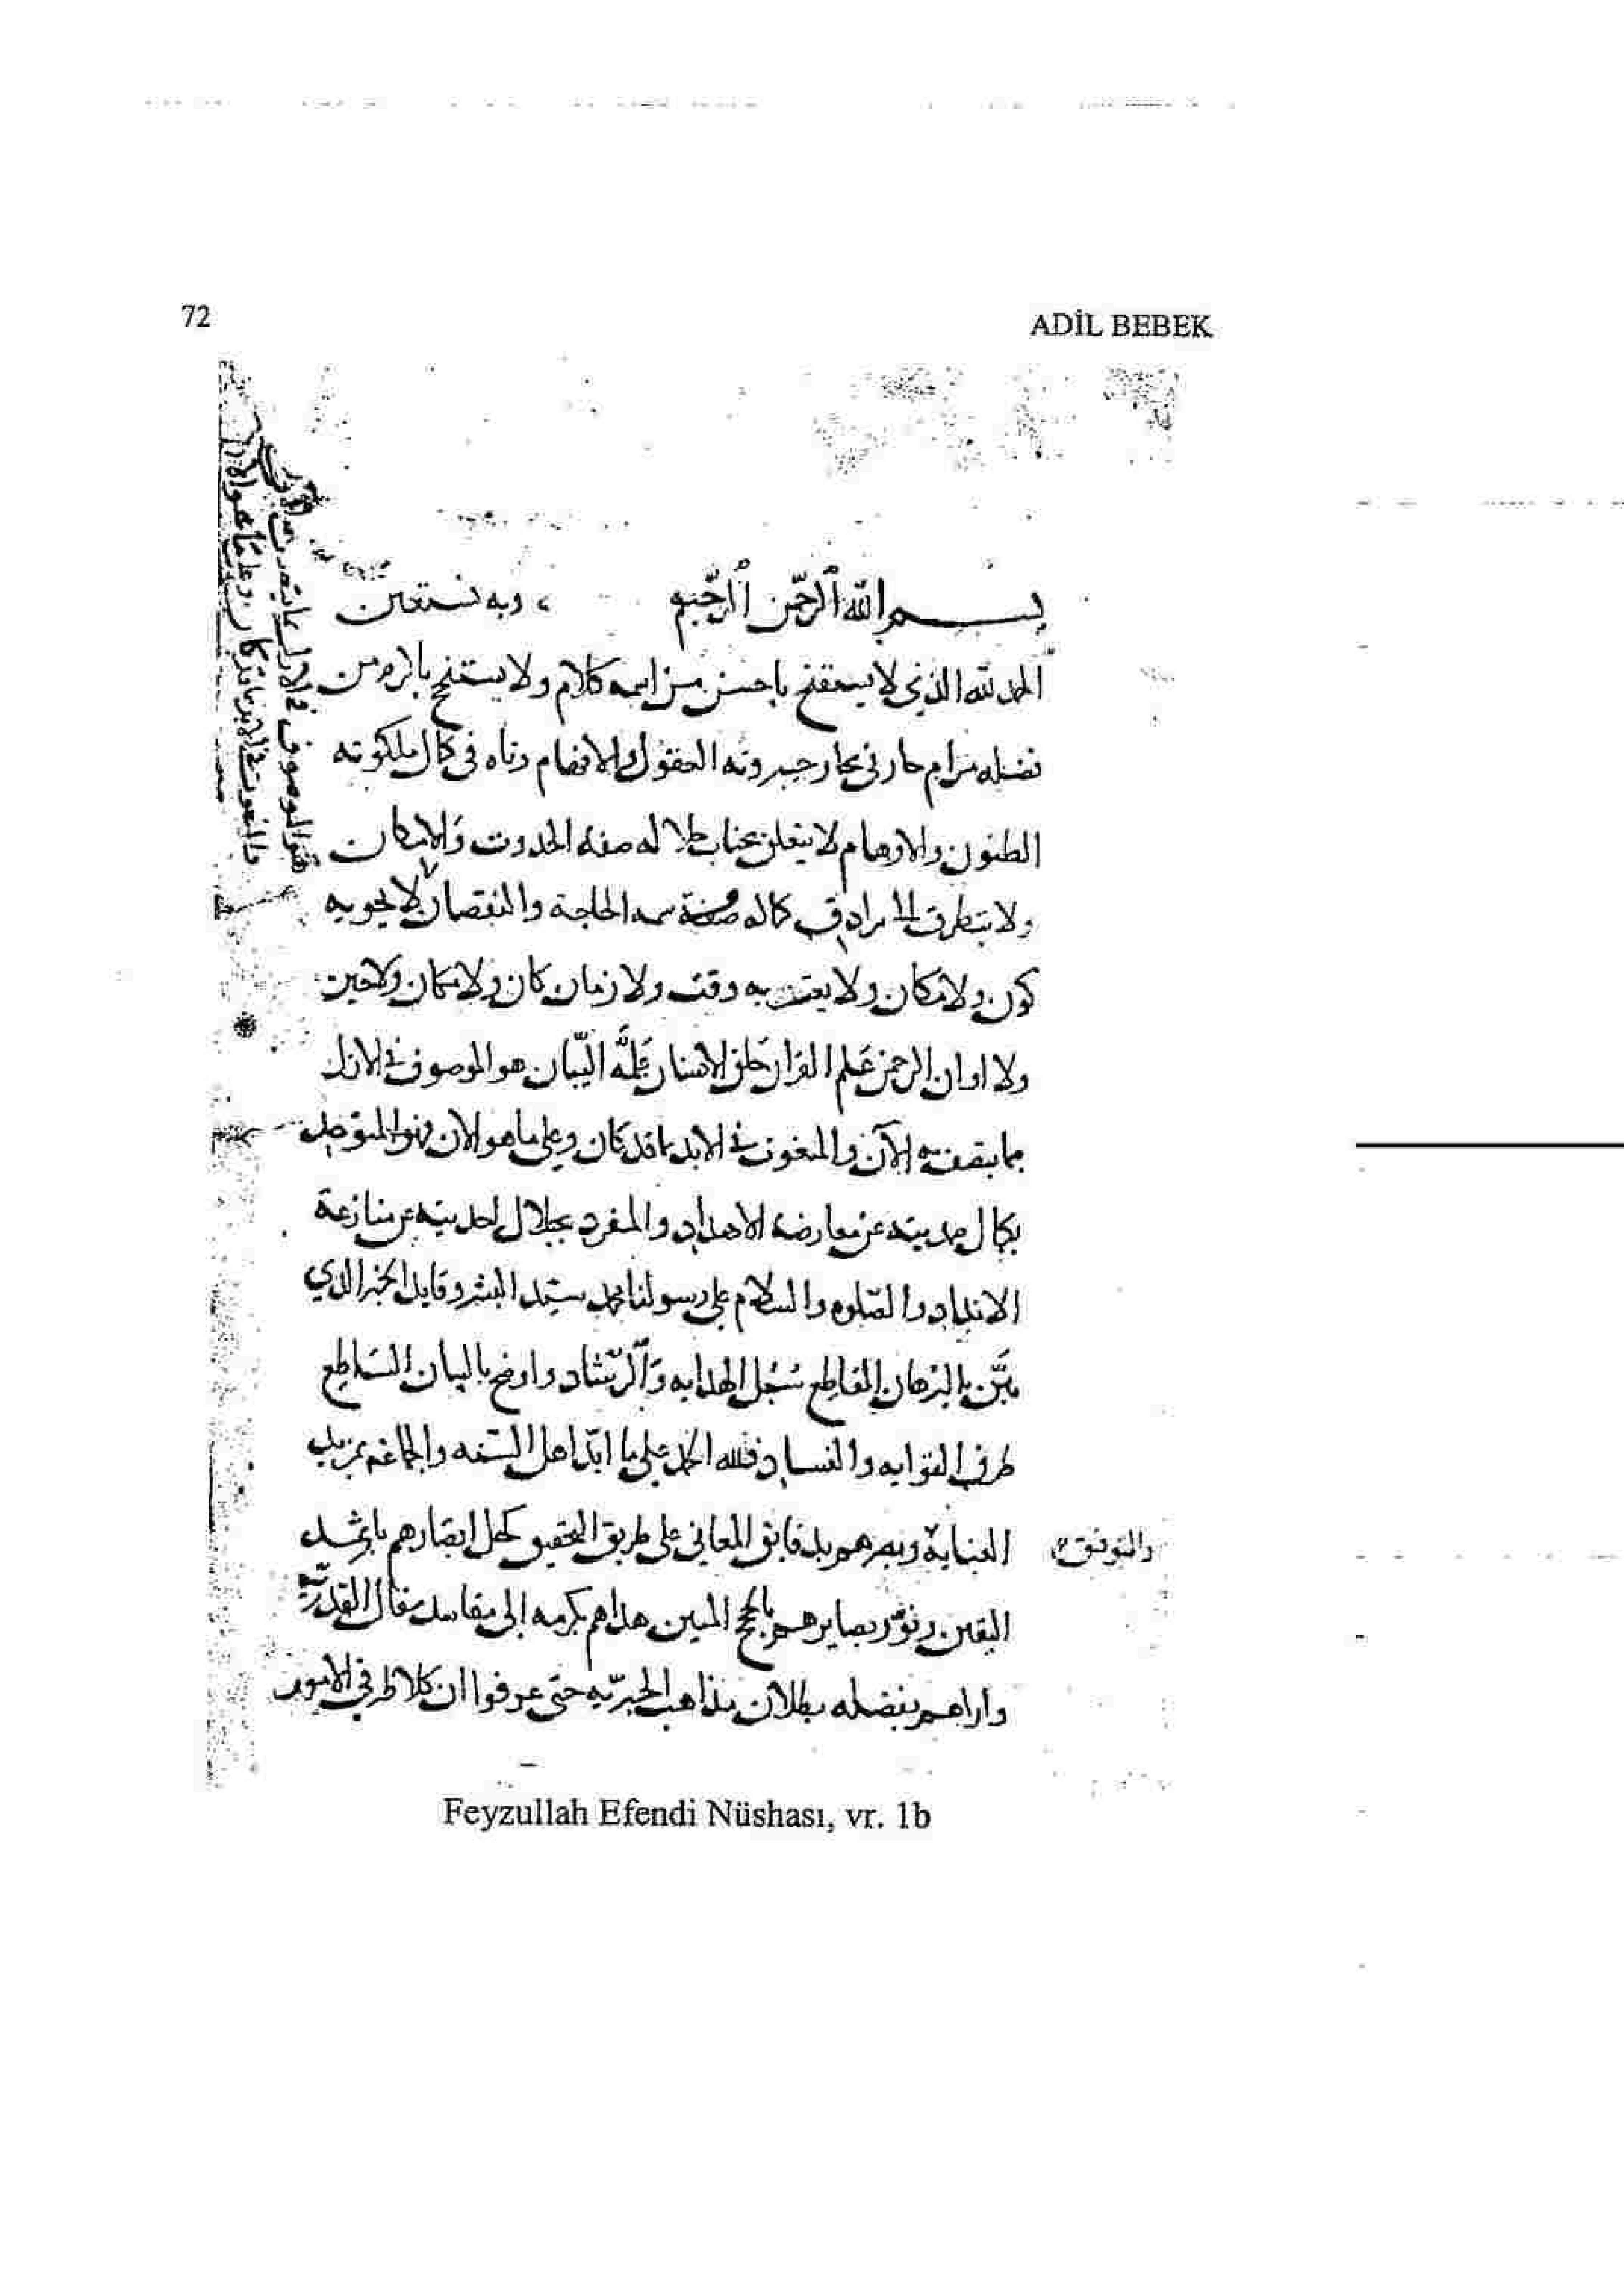 72
ADİL BEBEK
بسم الله الرحمن الرحيم وبه نستعين
الحمد لله الذي لا يستفتح باحسن من اسمه كلام ولا يستنجح بالزم من
فضله مرام حار في بحار جبروته العقول والافهام وتاه في كمال ملكوته
الظنون والاوهام لا يتعلق بجناب جلاله صفة الحدوث والامكان
ولا يتطرق الى كماله سمه الحاجة والنقصان لا يحويه
كون ولا مكان ولا يعتريه وقت ولا زمان كان ولا مكان ولا حين
ولا اوان الرحمن علم القران خلق الانسان علمه البيان هو الموصوف في الازل
بما يتصف به الآن والمنعوت في الابد بما قد كان وعلى ما هو الان فهو المتوحد
بكمال صمديته عن معارضة الاضداد والمنفرد بجلال احديته عن منازعة
الانداد والصلوه والسلام على رسولنا محمد سيد البشر وقايل الخبر الذي
بين بالبرهان القاطع سبل الهدايه والرشاد واوضح بالبيان الساطع
طرق الغوايه والفساد فلله الحمد على ما ايد اهل السنه والجماعه بمزيد
العناية وبصرهم بدقايق المعاني على طريق التحقيق كحل ابصارهم باثمد
والتوفيق
اليقين ونور بصايرهم بالحجج المبين هداهم بكرمه الى مفاسد مقال القدريه
واراهم بفضله بطلان مذاهب الجبريه حتى عرفوا ان كلا طرفي الامور
Feyzullah Efendi Nüshası, vr. 1b